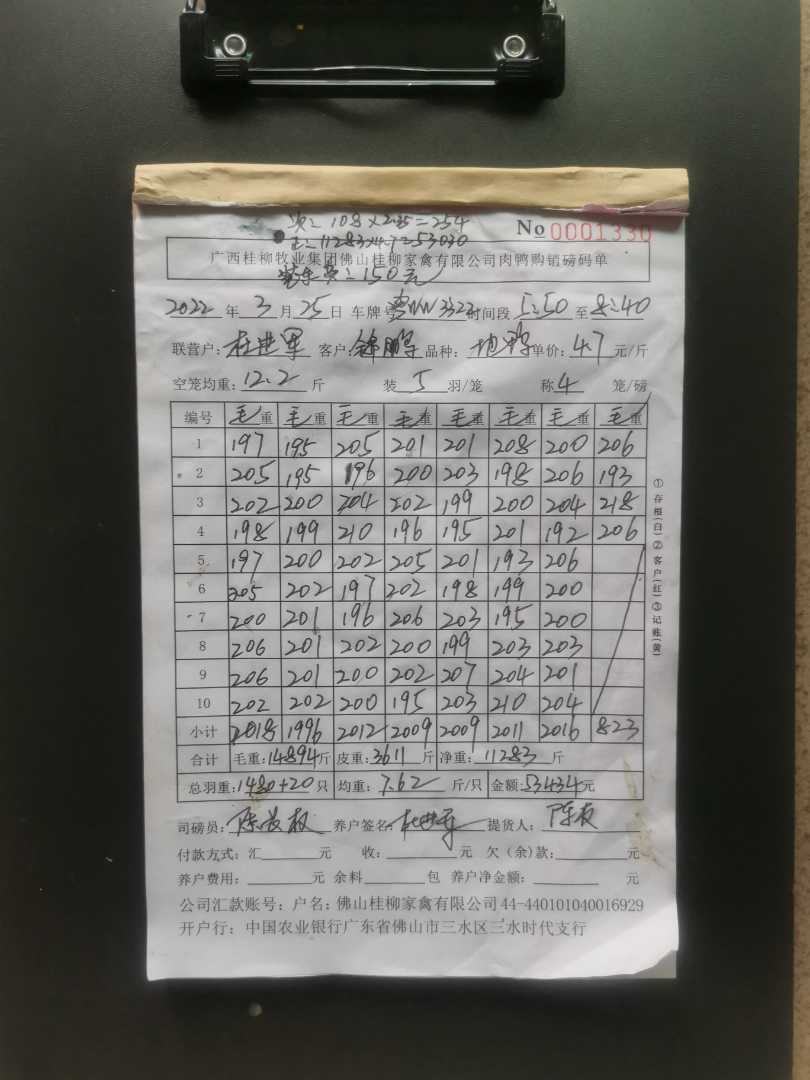 次: 108×2.35=254
毛: 11283×4.7=53030
No 0001330
广西桂柳牧业集团佛山桂柳家禽有限公司肉鸭购销磅码单
费: 150元
2022 年 3 月 25 日 车牌号 粤NW3323 时间段 5:50 至 8:40
联营户: 杜进军 客户: 锦鹏 品种: 单价: 4.7 元/斤
空笼均重: 12.2 斤 装 5 羽/笼 称 4 笼/磅
编号 毛重 毛重 毛重 毛重 毛重 毛重 毛重 毛重
1 197 195 205 201 201 208 200 206
2 205 195 196 200 203 198 206 193
3 202 200 204 202 199 200 204 218
4 198 199 210 196 195 201 192 206
5 197 200 202 205 201 193 206
6 205 202 197 202 198 199 200
7 200 201 196 206 203 195 200
8 206 201 202 200 199 203 203
9 206 201 200 202 207 204 201
10 202 202 200 195 203 210 204
小计 2018 1996 2012 2009 2009 2011 2016 823
合计 毛重: 14894 斤 皮重: 3611 斤 净重: 11283 斤
总羽重: 1480+20 只 均重: 7.62 斤/只 金额: 53434 元
司磅员: 养户签名: 杜进军 提货人: 陈友
付款方式: 汇 元 收: 元 欠(余)款: 元
养户费用: 元 余料 包 养户净金额: 元
公司汇款账号: 户名: 佛山桂柳家禽有限公司44-440101040016929
开户行: 中国农业银行广东省佛山市三水区三水时代支行
①存根(白)②客户(红)③记账(黄)